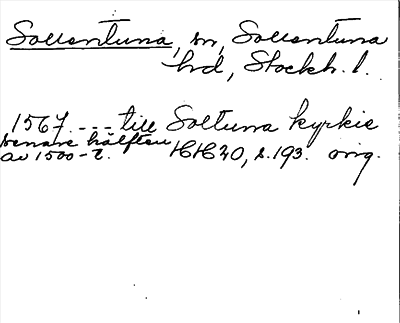 Sollentuna, sn, Sollentuna
hd, Stockh. l.
1567. --- till Soltuna kyrkie
senare hälften
av 1500-t. HH 20, s. 193. orig.